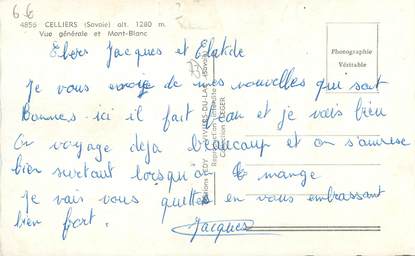 66
4856 - CELLIERS (Savoie) alt. 1280 m.
Vue générale et Mont-Blanc
Photographie
Véritable
Chers Jacques et Clotilde
Je vous envoie de mes nouvelles qui sont
Bonnes ici il fait beau et je vais bien
On voyage deja beaucoup et on s'amuse
bien surtout lorsqu on mange
Je vais vous quitter en vous embrassant
bien fort.
Jacques
Reproduction interdite
Collection LEGER